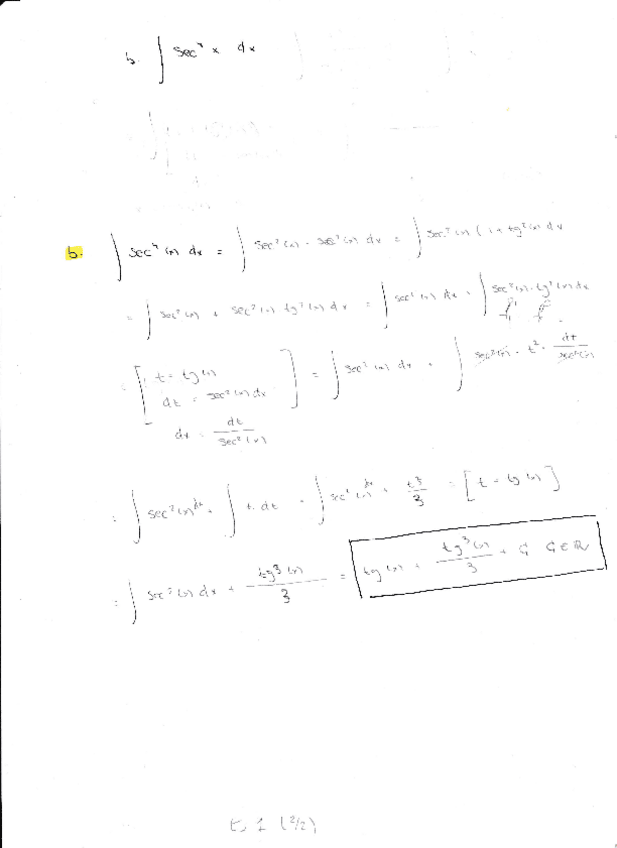 b. ∫ sec⁴ x dx
b. ∫ sec⁴(x) dx = ∫ sec²(x) · sec²(x) dx = ∫ sec²(x) (1 + tg²(x) dx
= ∫ sec²(x) + sec²(x) tg²(x) dx = ∫ sec²(x) dx + ∫ sec²(x) · tg²(x) dx
= [ t = tg(x)
dt = sec²(x) dx ] = ∫ sec²(x) dx + ∫ sec²(x) · t² · dt/sec²(x)
dx = dt/sec²(x)
= ∫ sec²(x) dx + ∫ t · dt = ∫ sec²(x) dx + t³/3 = [t = tg(x)]
= ∫ sec²(x) dx + tg³(x)/3 = tg(x) + tg³(x)/3 + C C ∈ ℝ
E. 1 (2/2)